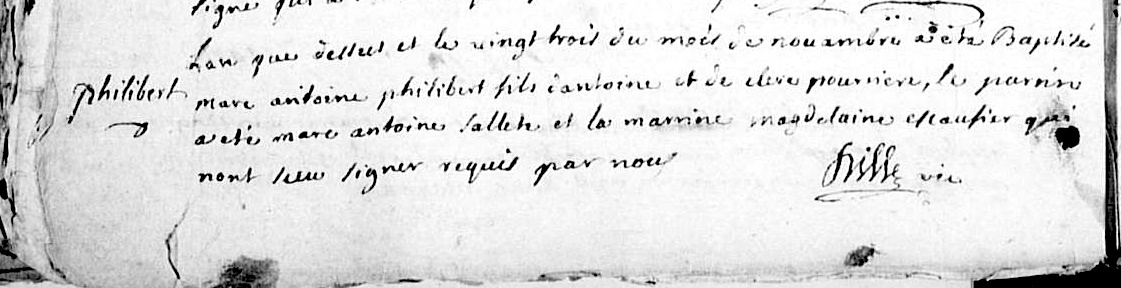 signe
Lan que dessus et le vingt trois du mois de nouambre a eté Baptisé
philibert
marc antoine philibert fils dantoine et de clere poursiere, le parrin
a eté marc antoine sallete et la marrine magdelaine escausier qui
nont sceu signer requis par nous
vic